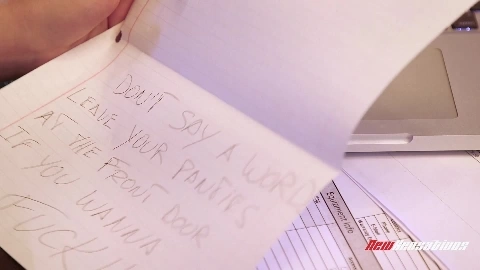 DON'T SAY A WORD
LEAVE YOUR PANTIES
AT THE FRONT DOOR
IF YOU WANNA
FUCK
Equipment rate
New Sensations